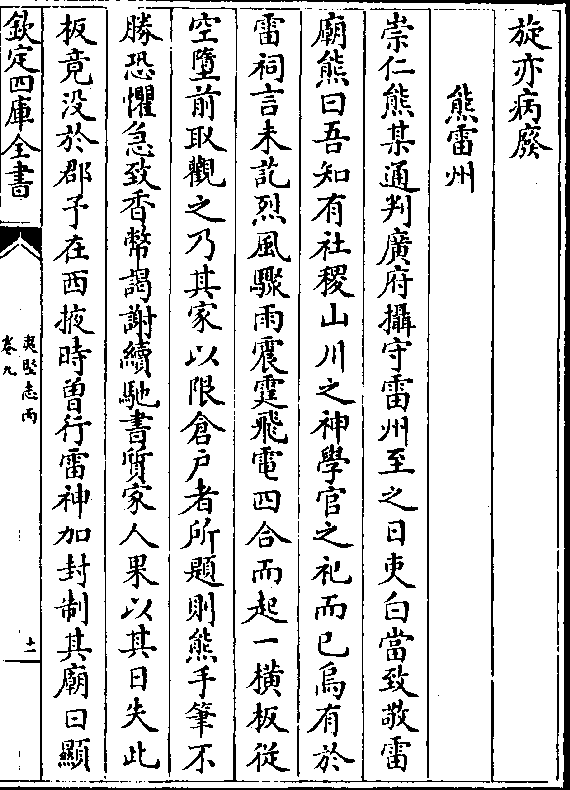 旋亦病廢
熊雷州
崇仁熊某通判廣府攝守雷州至之日吏白當致敬雷
廟熊曰吾知有社稷山川之神學官之祀而已烏有於
雷祠言未訖烈風驟雨震霆飛電四合而起一横板從
空墮前取觀之乃其家以限倉户者所題則熊手筆不
勝恐懼急致香幣謁謝續馳書質家人果以其日失此
板竟没於郡予在西掖時曽行雷神加封制其廟曰顯
欽定四庫全書
夷堅志丙
卷九
十二